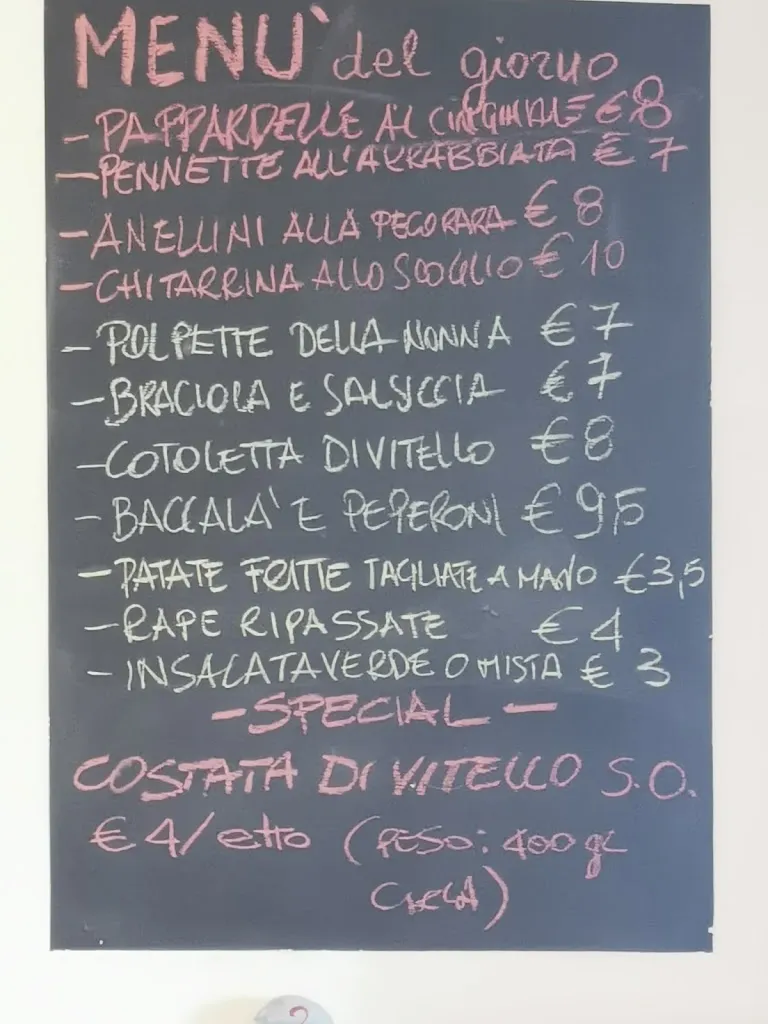 MENU` del giorno
- PAPPARDELLE AL CINGHIALE € 8
- PENNETTE ALL'ARRABBIATA € 7
- ANELLINI ALLA PECORARA € 8
- CHITARRINA ALLO SCOGLIO € 10
- POLPETTE DELLA NONNA € 7
- BRACIOLA E SALSICCIA € 7
- COTOLETTA DI VITELLO € 8
- BACCALA' E PEPERONI € 9,5
- PATATE FRITTE TAGLIATE A MANO € 3,5
- RAPE RIPASSATE € 4
- INSALATA VERDE O MISTA € 3
- SPECIAL -
COSTATA DI VITELLO S.O.
€ 4/etto (PESO: 400 gr
CIRCA)
?